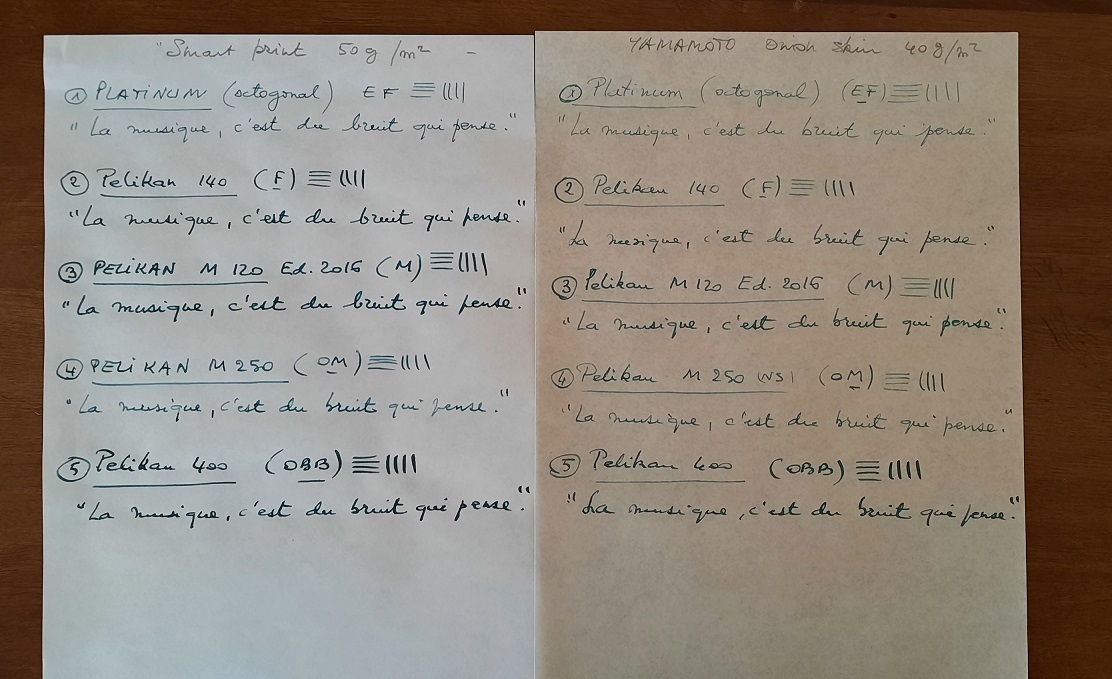 "Smart print 50g/m² -
① PLATINUM (octogonal) EF
"La musique, c'est du bruit qui pense."
② Pelikan 140 (F)
"La musique, c'est du bruit qui pense."
③ PELIKAN M 120 Ed. 2016 (M)
"La musique, c'est du bruit qui pense."
④ PELIKAN M 250 (OM)
"La musique, c'est du bruit qui pense."
⑤ Pelikan 400 (OBB)
"La musique, c'est du bruit qui pense."
YAMAMOTO Onion skin 40g/m²
① Platinum (octogonal) (EF)
"La musique, c'est du bruit qui pense."
② Pelikan 140 (F)
"La musique, c'est du bruit qui pense."
③ Pelikan M 120 Ed. 2016 (M)
"La musique, c'est du bruit qui pense."
④ Pelikan M 250 (OM)
"La musique, c'est du bruit qui pense."
⑤ Pelikan 400 (OBB)
"La musique, c'est du bruit qui pense."